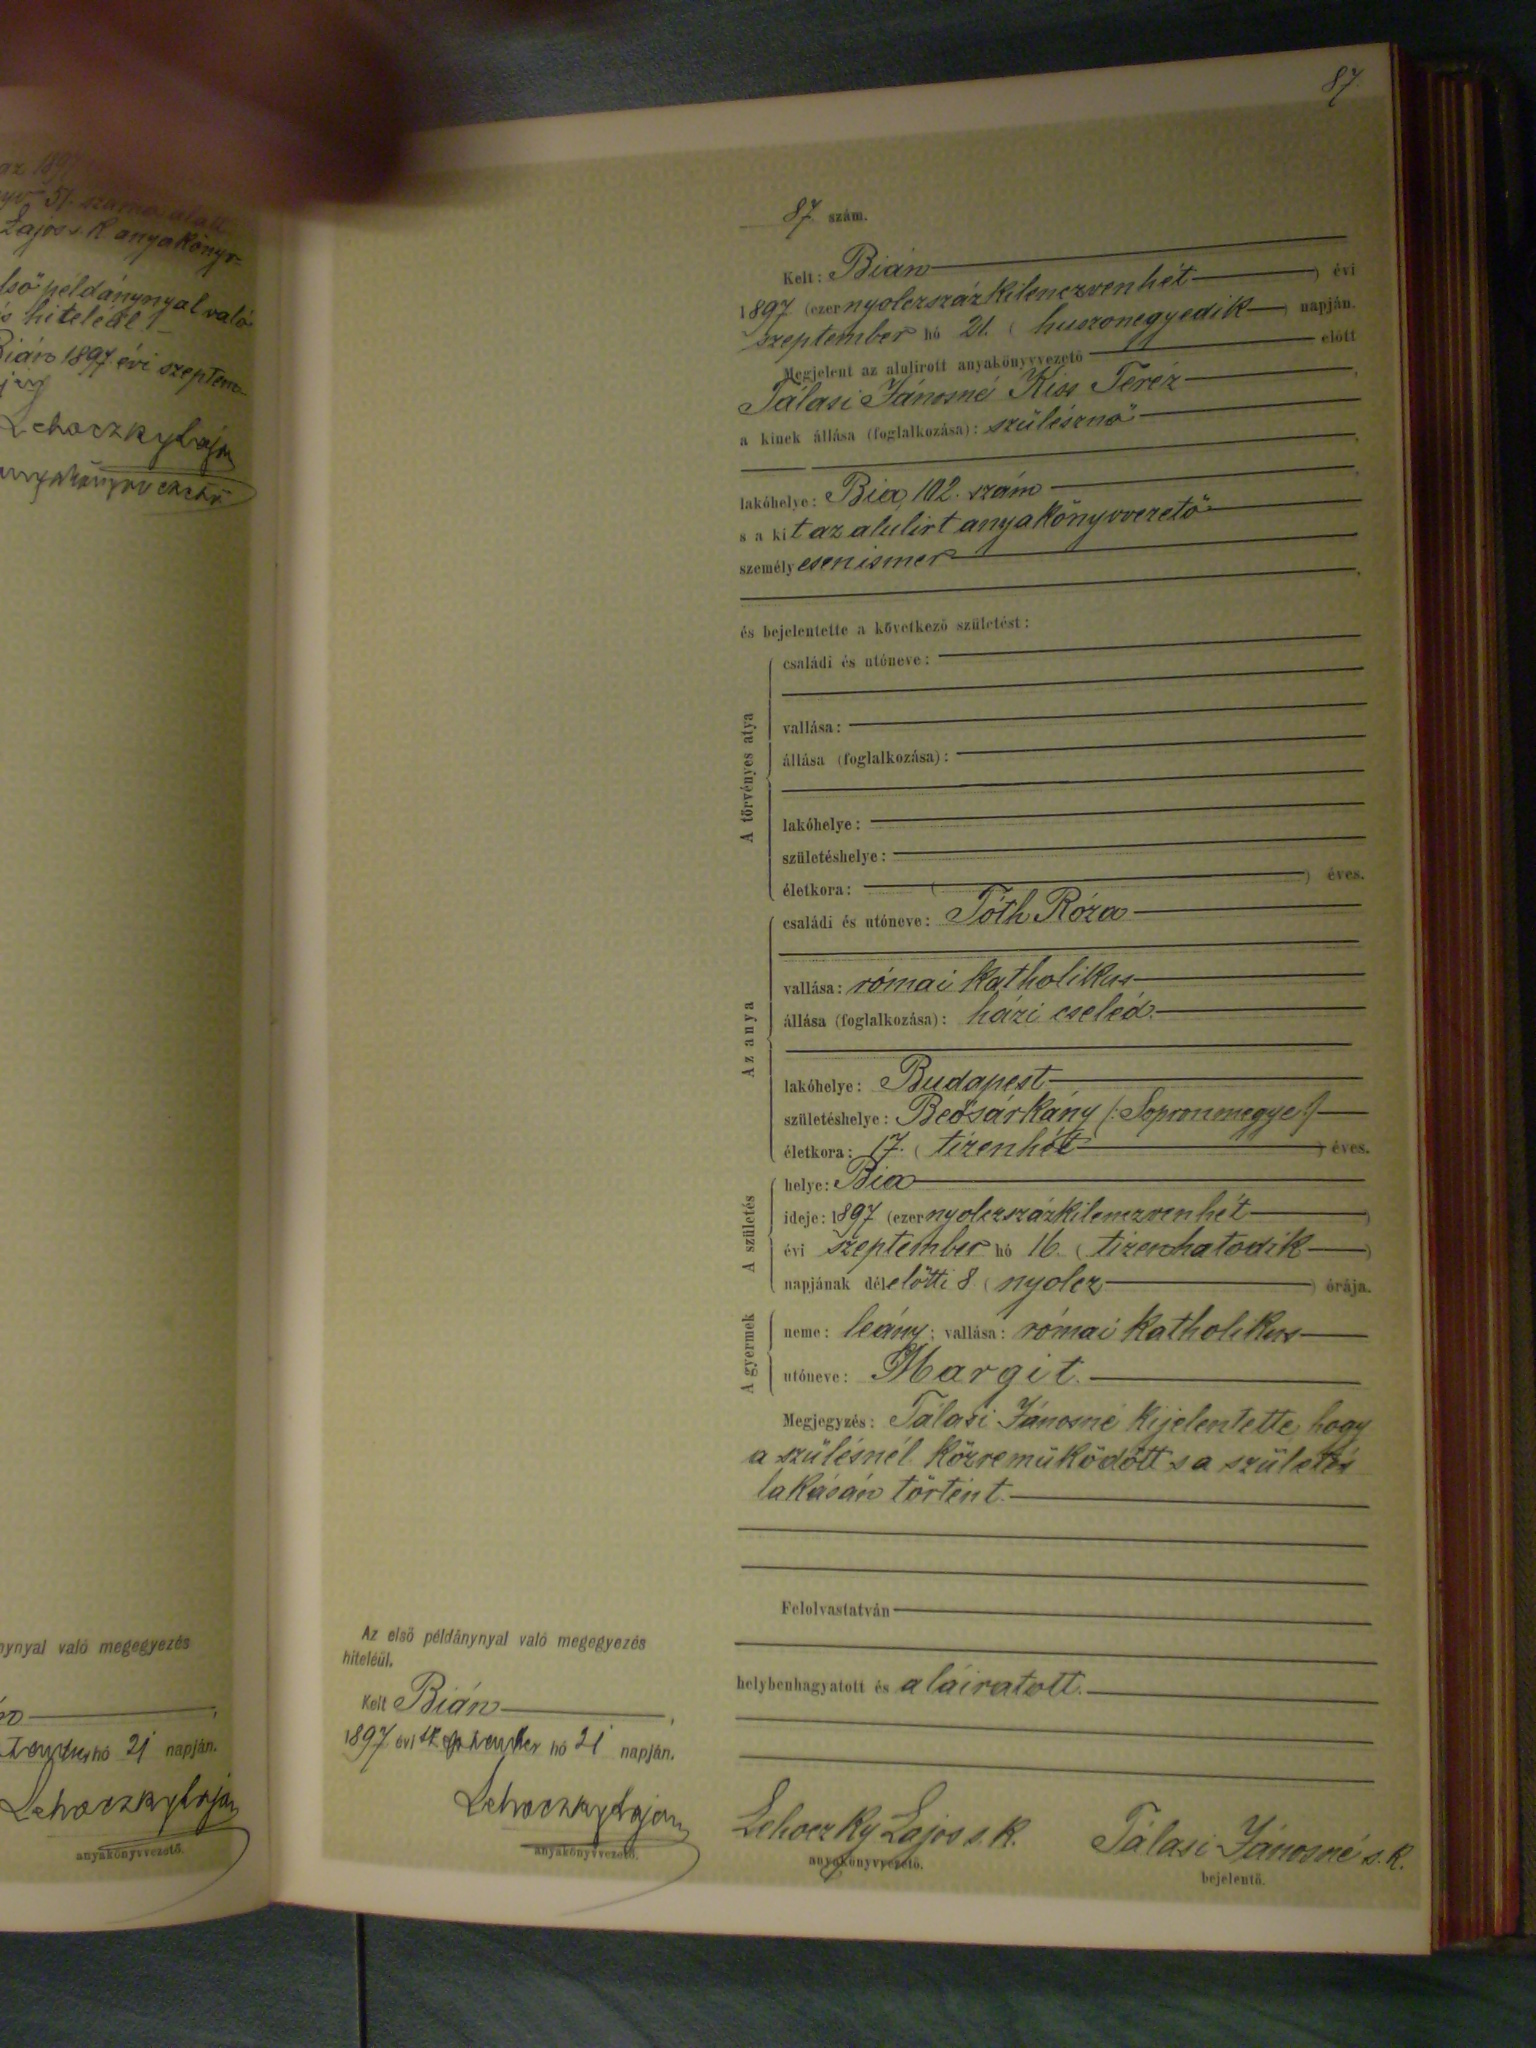 az 1897
51. száma alatt
Lajos s. k. anyakönyv-
első példánynyal való
s hiteléül.
Bián 1897 évi szeptem-
Lehoczky Lajos
anyakönyvvezető
nynyal való megegyezés
hó 21 napján.
Lehoczky Lajos
anyakönyvvezető.
87.
87 szám.
Kelt: Bián
1897 (ezernyolczszázkilenczvenhét) évi
szeptember hó 21. (huszonegyedik) napján.
Megjelent az alulirott anyakönyvvezető előtt
Tálasi Jánosné Kiss Teréz
a kinek állása (foglalkozása): szülésznő
lakóhelye: Bia, 102. szám
s a kit az alulirt anyakönyvvezető
személyesen ismer
és bejelentette a következő születést:
A törvényes atya
családi és utóneve:
vallása:
állása (foglalkozása):
lakóhelye:
születéshelye:
életkora: ( ) éves.
Az anya
családi és utóneve: Tóth Róza
vallása: római katholikus
állása (foglalkozása): házi cseléd.
lakóhelye: Budapest
születéshelye: Beősárkány (: Sopronmegye :)
életkora: 17. (tizenhét) éves.
A születés
helye: Bia
ideje: 1897 (ezernyolczszázkilenczvenhét)
évi szeptember hó 16. (tizenhatodik)
napjának délelőtti 8 (nyolcz) órája.
A gyermek
neme: leány; vallása: római katholikus
utóneve: Margit.
Megjegyzés: Tálasi Jánosné kijelentette, hogy
a szülésnél közreműködött s a születés
lakásán történt.
Felolvastatván
helybenhagyatott és aláiratott.
Lehoczky Lajos s. k.
anyakönyvvezető.
Tálasi Jánosné s. k.
bejelentő.
Az első példánynyal való megegyezés
hiteléül.
Kelt Bián,
1897 évi szeptember hó 21 napján.
Lehoczky Lajos
anyakönyvvezető.